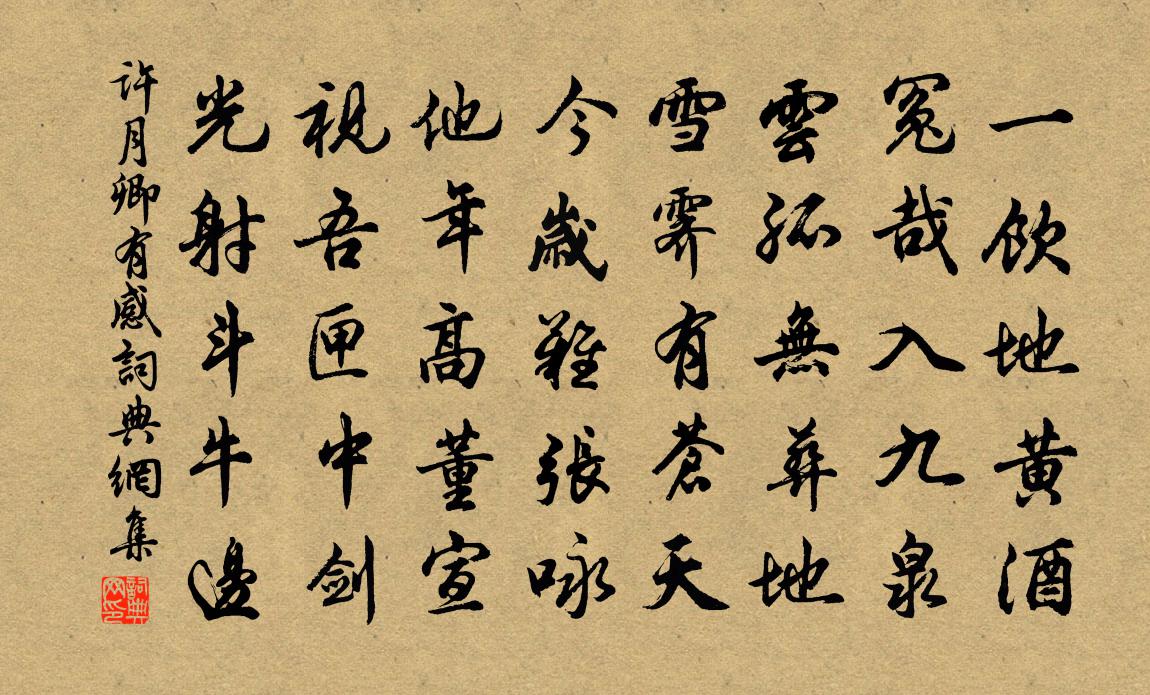 一飲地黄酒
冤哉入九泉
雲孤無葬地
雪霽有蒼天
今歲難張咏
他年高董宣
視吾匣中劍
光射斗牛邊
許月卿有感詞典網集
詞典网印